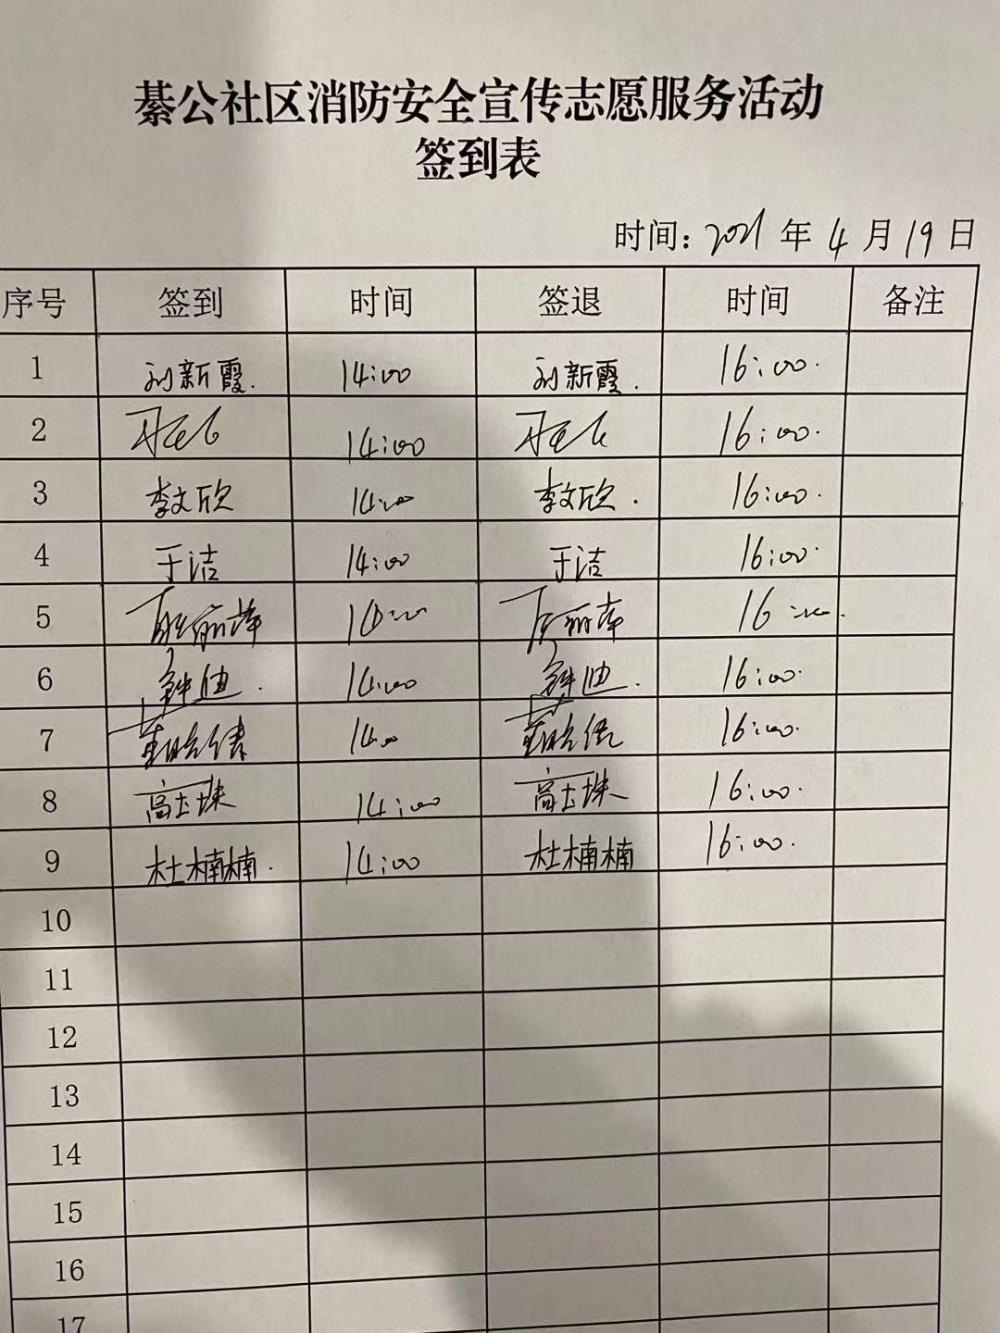 綦公社区消防安全宣传志愿服务活动
签到表
时间：2021 年 4 月 19 日
序号 签到 时间 签退 时间 备注
1 刘新霞. 14:00 刘新霞. 16:00.
2 14:00 16:00.
3 李文欣 14:00 李文欣. 16:00.
4 于洁 14:00 于洁 16:00.
5 14:00 16:00.
6 钟迪. 14:00 钟迪. 16:00.
7 14:00 16:00.
8 14:00 16:00.
9 杜楠楠. 14:00 杜楠楠 16:00.
10
11
12
13
14
15
16
17